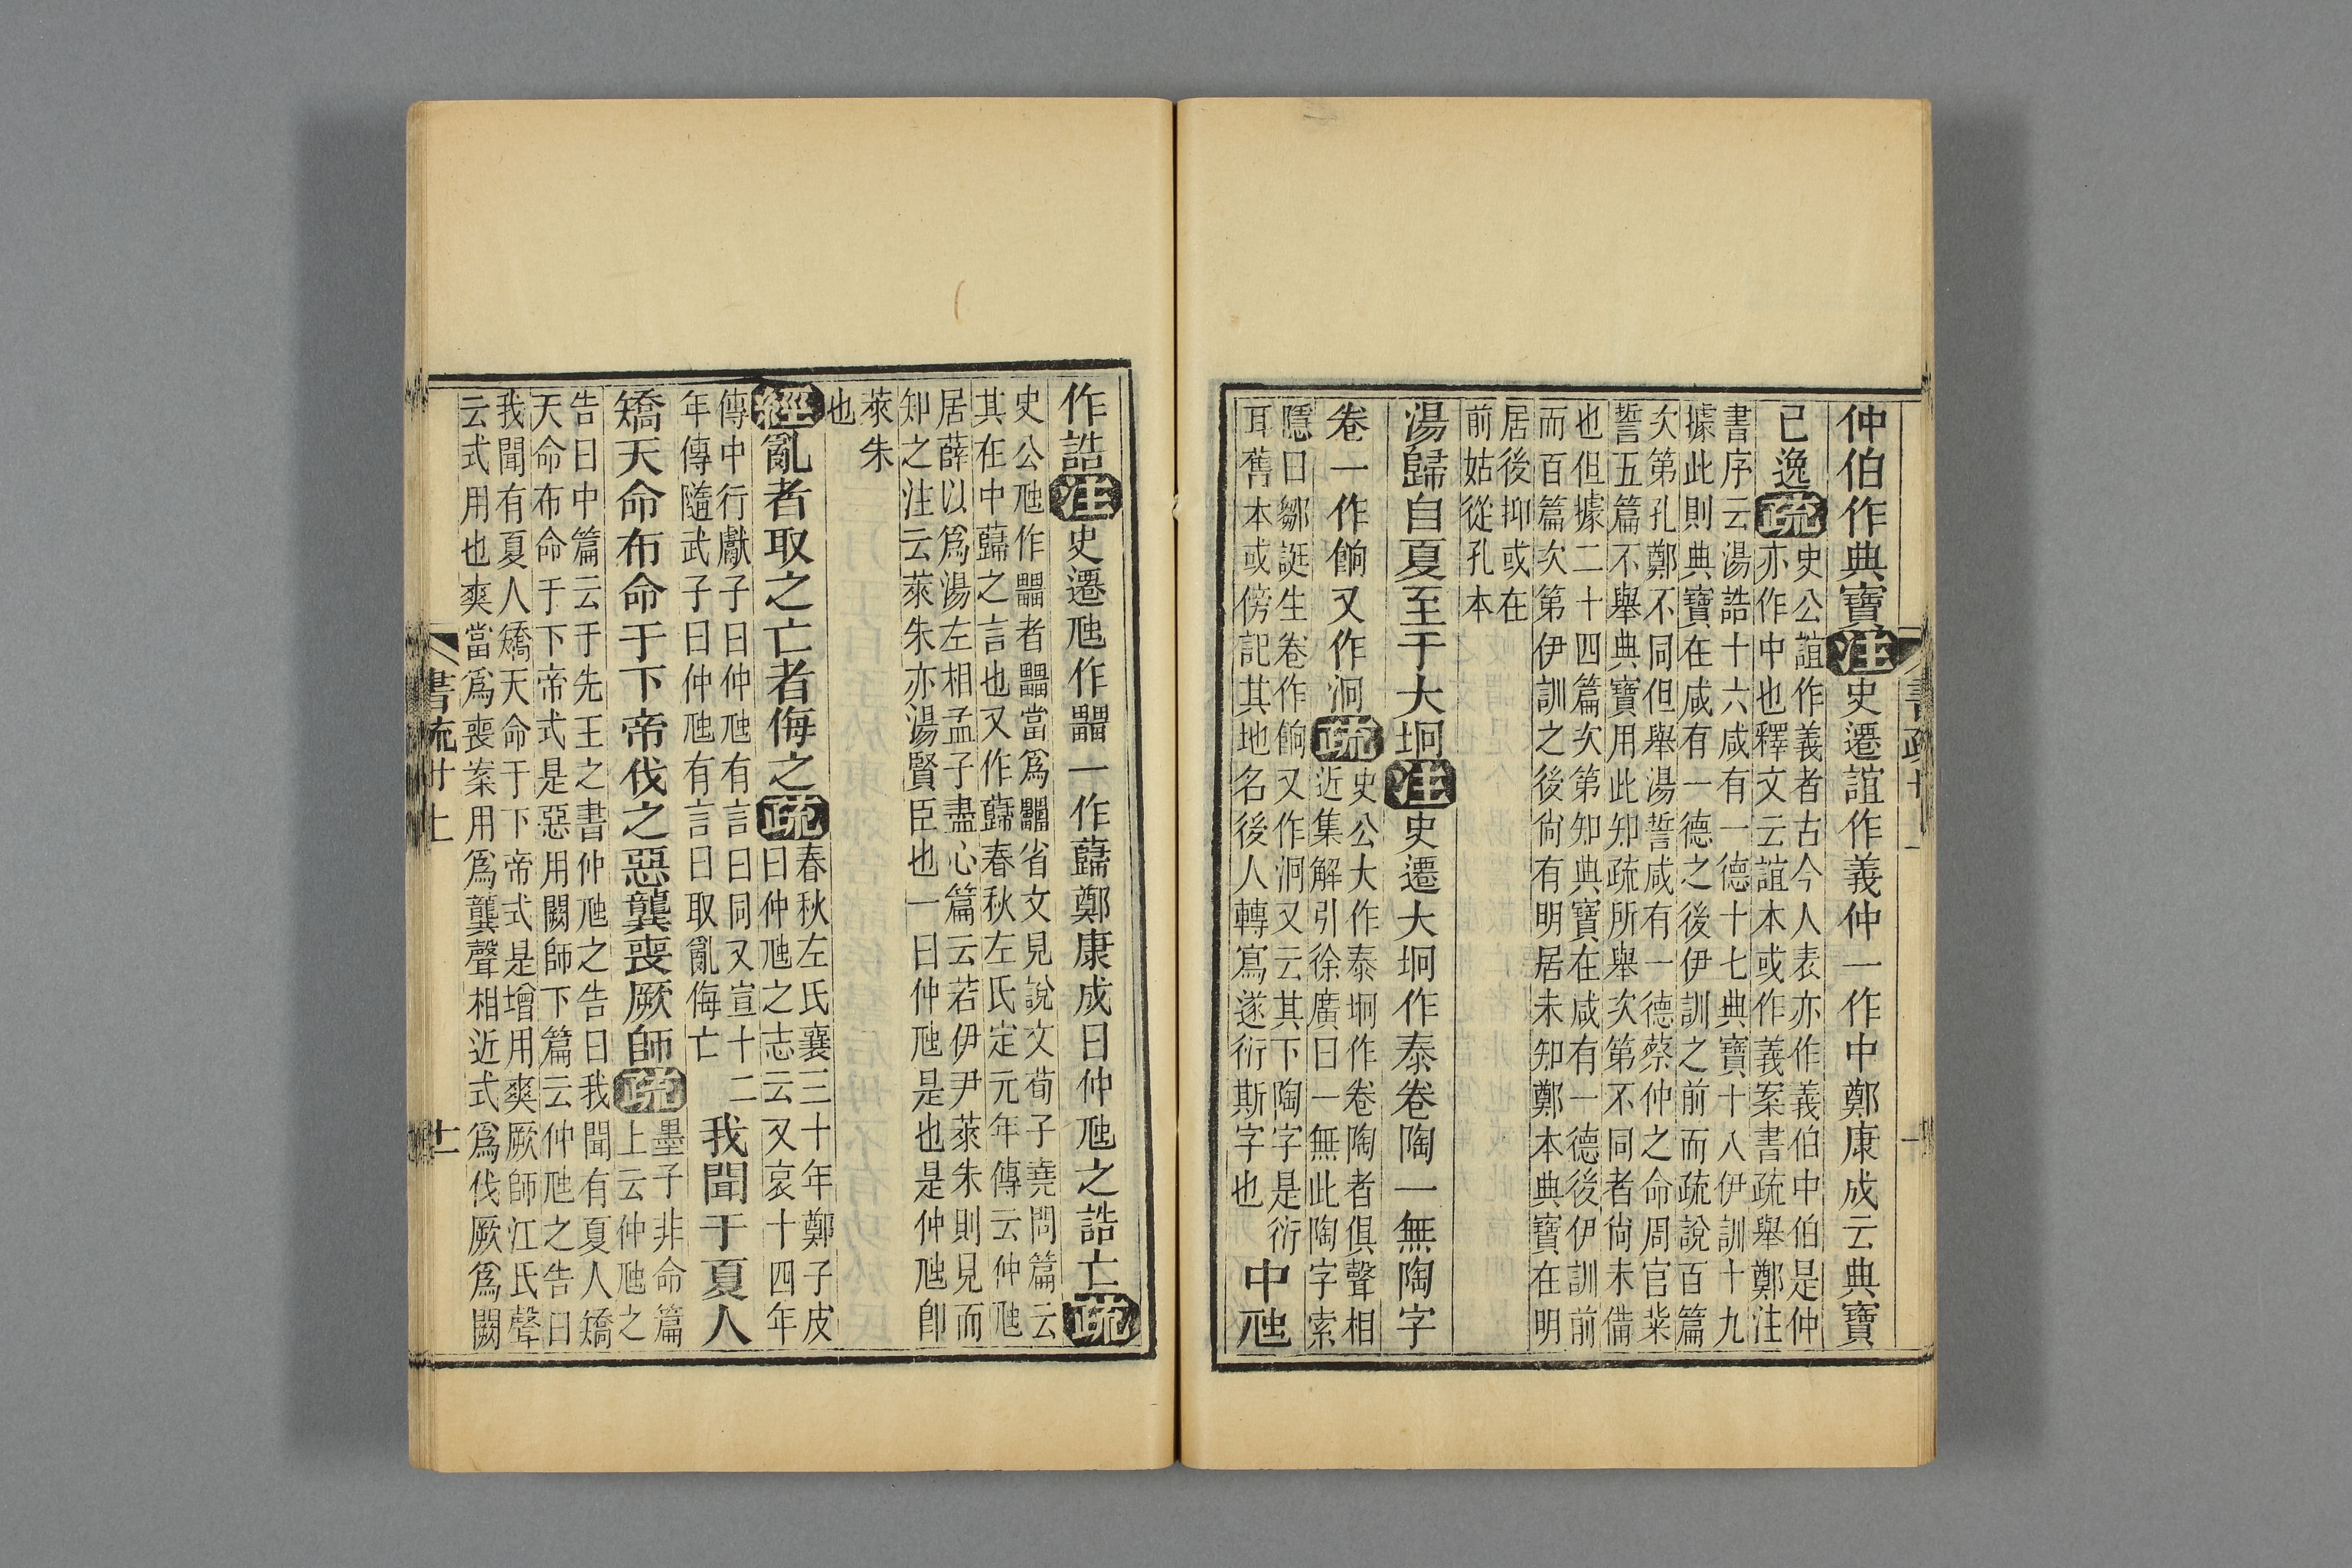 仲伯作典寶注史遷誼作義仲一作中鄭康成云典寶
已逸疏史公誼作義者古今人表亦作義伯中伯是仲
亦作中也釋文云誼本或作義案書疏舉鄭注
書序云湯誥十六咸有一德十七典寶十八伊訓十九
據此則典寶在咸有一德之後伊訓之前而疏說百篇
次第孔鄭不同但舉湯誓咸有一德蔡仲之命周官粊
誓五篇不舉典寶用此知疏所舉次第不同者尙未備
也但據二十四篇次第知典寶在咸有一德後伊訓前
而百篇次第伊訓之後尙有明居未知鄭本典寶在明
居後抑或在
前姑從孔本
湯歸自夏至于大坰注史遷大坰作泰卷陶一無陶字
卷一作餉又作泂疏史公大作泰坰作卷陶者俱聲相
近集解引徐廣曰一無此陶字索
隱曰鄒誕生卷作餉又作泂又云其下陶字是衍
耳舊本或傍記其地名後人轉寫遂衍斯字也
中虺
作誥注史遷虺作䨓一作蘬鄭康成曰仲虺之誥亡疏
史公虺作䨓者䨓當爲䨻省文見說文荀子堯問篇云
其在中蘬之言也又作蘬春秋左氏定元年傳云仲虺
居薛以爲湯左相孟子盡心篇云若伊尹萊朱則見而
知之注云萊朱亦湯賢臣也一曰仲虺是也是仲虺卽
萊朱
也
經亂者取之亡者侮之疏春秋左氏襄三十年鄭子皮
曰仲虺之志云又哀十四年
傳中行獻子曰仲虺有言曰同又宣十二
年傳隨武子曰仲虺有言曰取亂侮亡
我聞于夏人
矯天命布命于下帝伐之惡龔喪厥師疏墨子非命篇
上云仲虺之
告曰中篇云于先王之書仲虺之告曰我聞有夏人矯
天命布命于下帝式是惡用闕師下篇云仲虺之告曰
我聞有夏人矯天命于下帝式是增用爽厥師江氏聲
云式用也爽當爲喪案用爲龔聲相近式爲伐厥爲闕
書疏卄上
十一